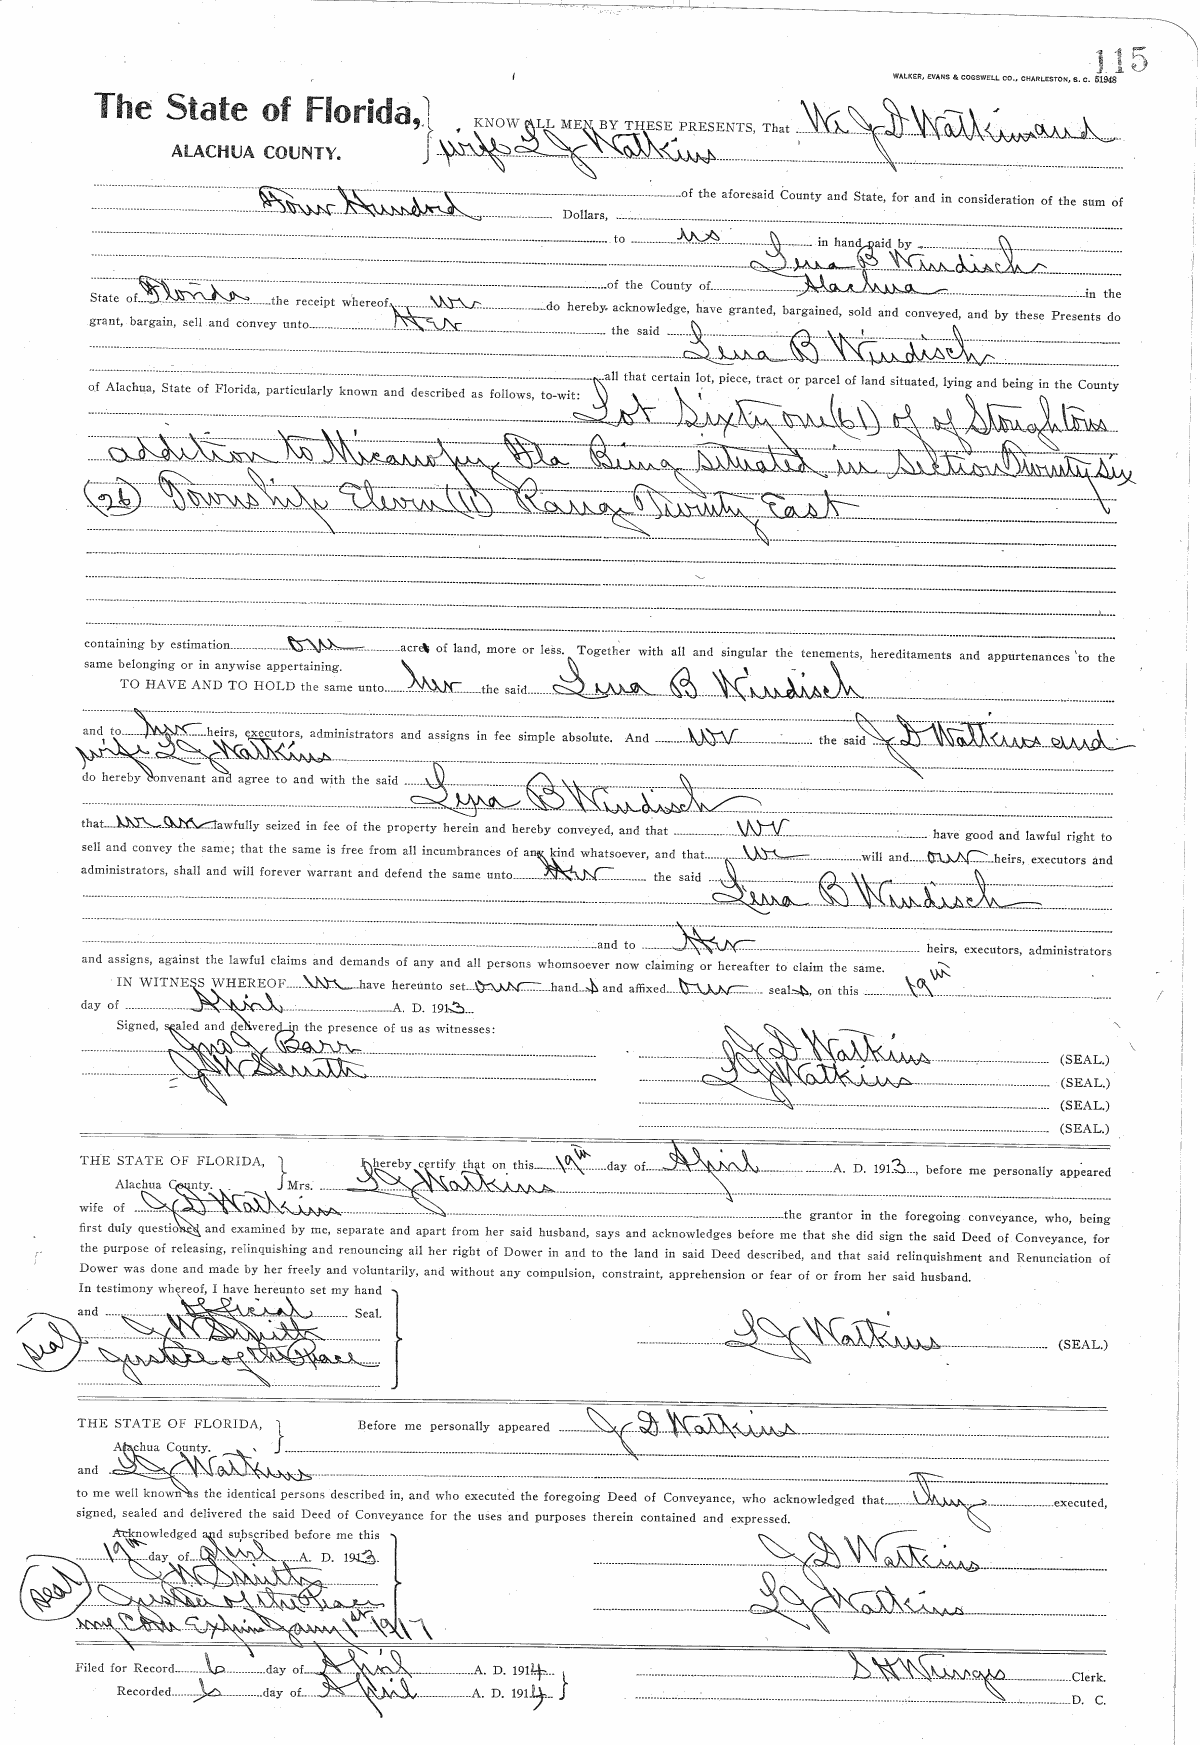 115
WALKER, EVANS & COGSWELL CO., CHARLESTON, S. C. 51948
The State of Florida,
ALACHUA COUNTY.
KNOW ALL MEN BY THESE PRESENTS, That We J D Watkins and
wife L J Watkins
of the aforesaid County and State, for and in consideration of the sum of
Four Hundrd Dollars,
to us in hand paid by
Lena B Windisch
of the County of Alachua in the
State of Florida the receipt whereof we do hereby acknowledge, have granted, bargained, sold and conveyed, and by these Presents do
grant, bargain, sell and convey unto Her the said
Lena B Windisch
all that certain lot, piece, tract or parcel of land situated, lying and being in the County
of Alachua, State of Florida, particularly known and described as follows, to-wit:
Lot Sixty one (61) of of Stoughtons
addition to Micanopy Fla Being situated in Section Twenty six
(26) Township Eleven (11) Range Twenty East
containing by estimation one acre of land, more or less. Together with all and singular the tenements, hereditaments and appurtenances to the
same belonging or in anywise appertaining.
TO HAVE AND TO HOLD the same unto her the said Lena B Windisch
and to her heirs, executors, administrators and assigns in fee simple absolute. And we the said J D Watkins and
wife L J Watkins
do hereby convenant and agree to and with the said
Lena B Windisch
that we are lawfully seized in fee of the property herein and hereby conveyed, and that we have good and lawful right to
sell and convey the same; that the same is free from all incumbrances of any kind whatsoever, and that we will and our heirs, executors and
administrators, shall and will forever warrant and defend the same unto Her the said
Lena B Windisch
and to Her heirs, executors, administrators
and assigns, against the lawful claims and demands of any and all persons whomsoever now claiming or hereafter to claim the same.
IN WITNESS WHEREOF We have hereunto set our hand s and affixed our seal s, on this 19th
day of April A. D. 1913
Signed, sealed and delivered in the presence of us as witnesses:
Jno J Barr
J W Smith
J D Watkins (SEAL.)
L J Watkins (SEAL.)
(SEAL.)
(SEAL.)
THE STATE OF FLORIDA,
Alachua County.
I hereby certify that on this 19th day of April A. D. 1913, before me personally appeared
Mrs. L J Watkins
wife of J D Watkins the grantor in the foregoing conveyance, who, being
first duly questioned and examined by me, separate and apart from her said husband, says and acknowledges before me that she did sign the said Deed of Conveyance, for
the purpose of releasing, relinquishing and renouncing all her right of Dower in and to the land in said Deed described, and that said relinquishment and Renunciation of
Dower was done and made by her freely and voluntarily, and without any compulsion, constraint, apprehension or fear of or from her said husband.
In testimony whereof, I have hereunto set my hand
and official Seal.
J W Smith
seal
Justice of the Peace
L J Watkins (SEAL.)
THE STATE OF FLORIDA,
Alachua County.
Before me personally appeared J D Watkins
and L J Watkins
to me well known as the identical persons described in, and who executed the foregoing Deed of Conveyance, who acknowledged that They executed,
signed, sealed and delivered the said Deed of Conveyance for the uses and purposes therein contained and expressed.
Acknowledged and subscribed before me this
19th day of April A. D. 1913.
J W Smith
seal
Justice of the Peace
my Com Expires Jany 1st 1917
J D Watkins
L J Watkins
Filed for Record 6 day of April A. D. 1914
Recorded 6 day of April A. D. 1914
S H Wienges Clerk.
D. C.